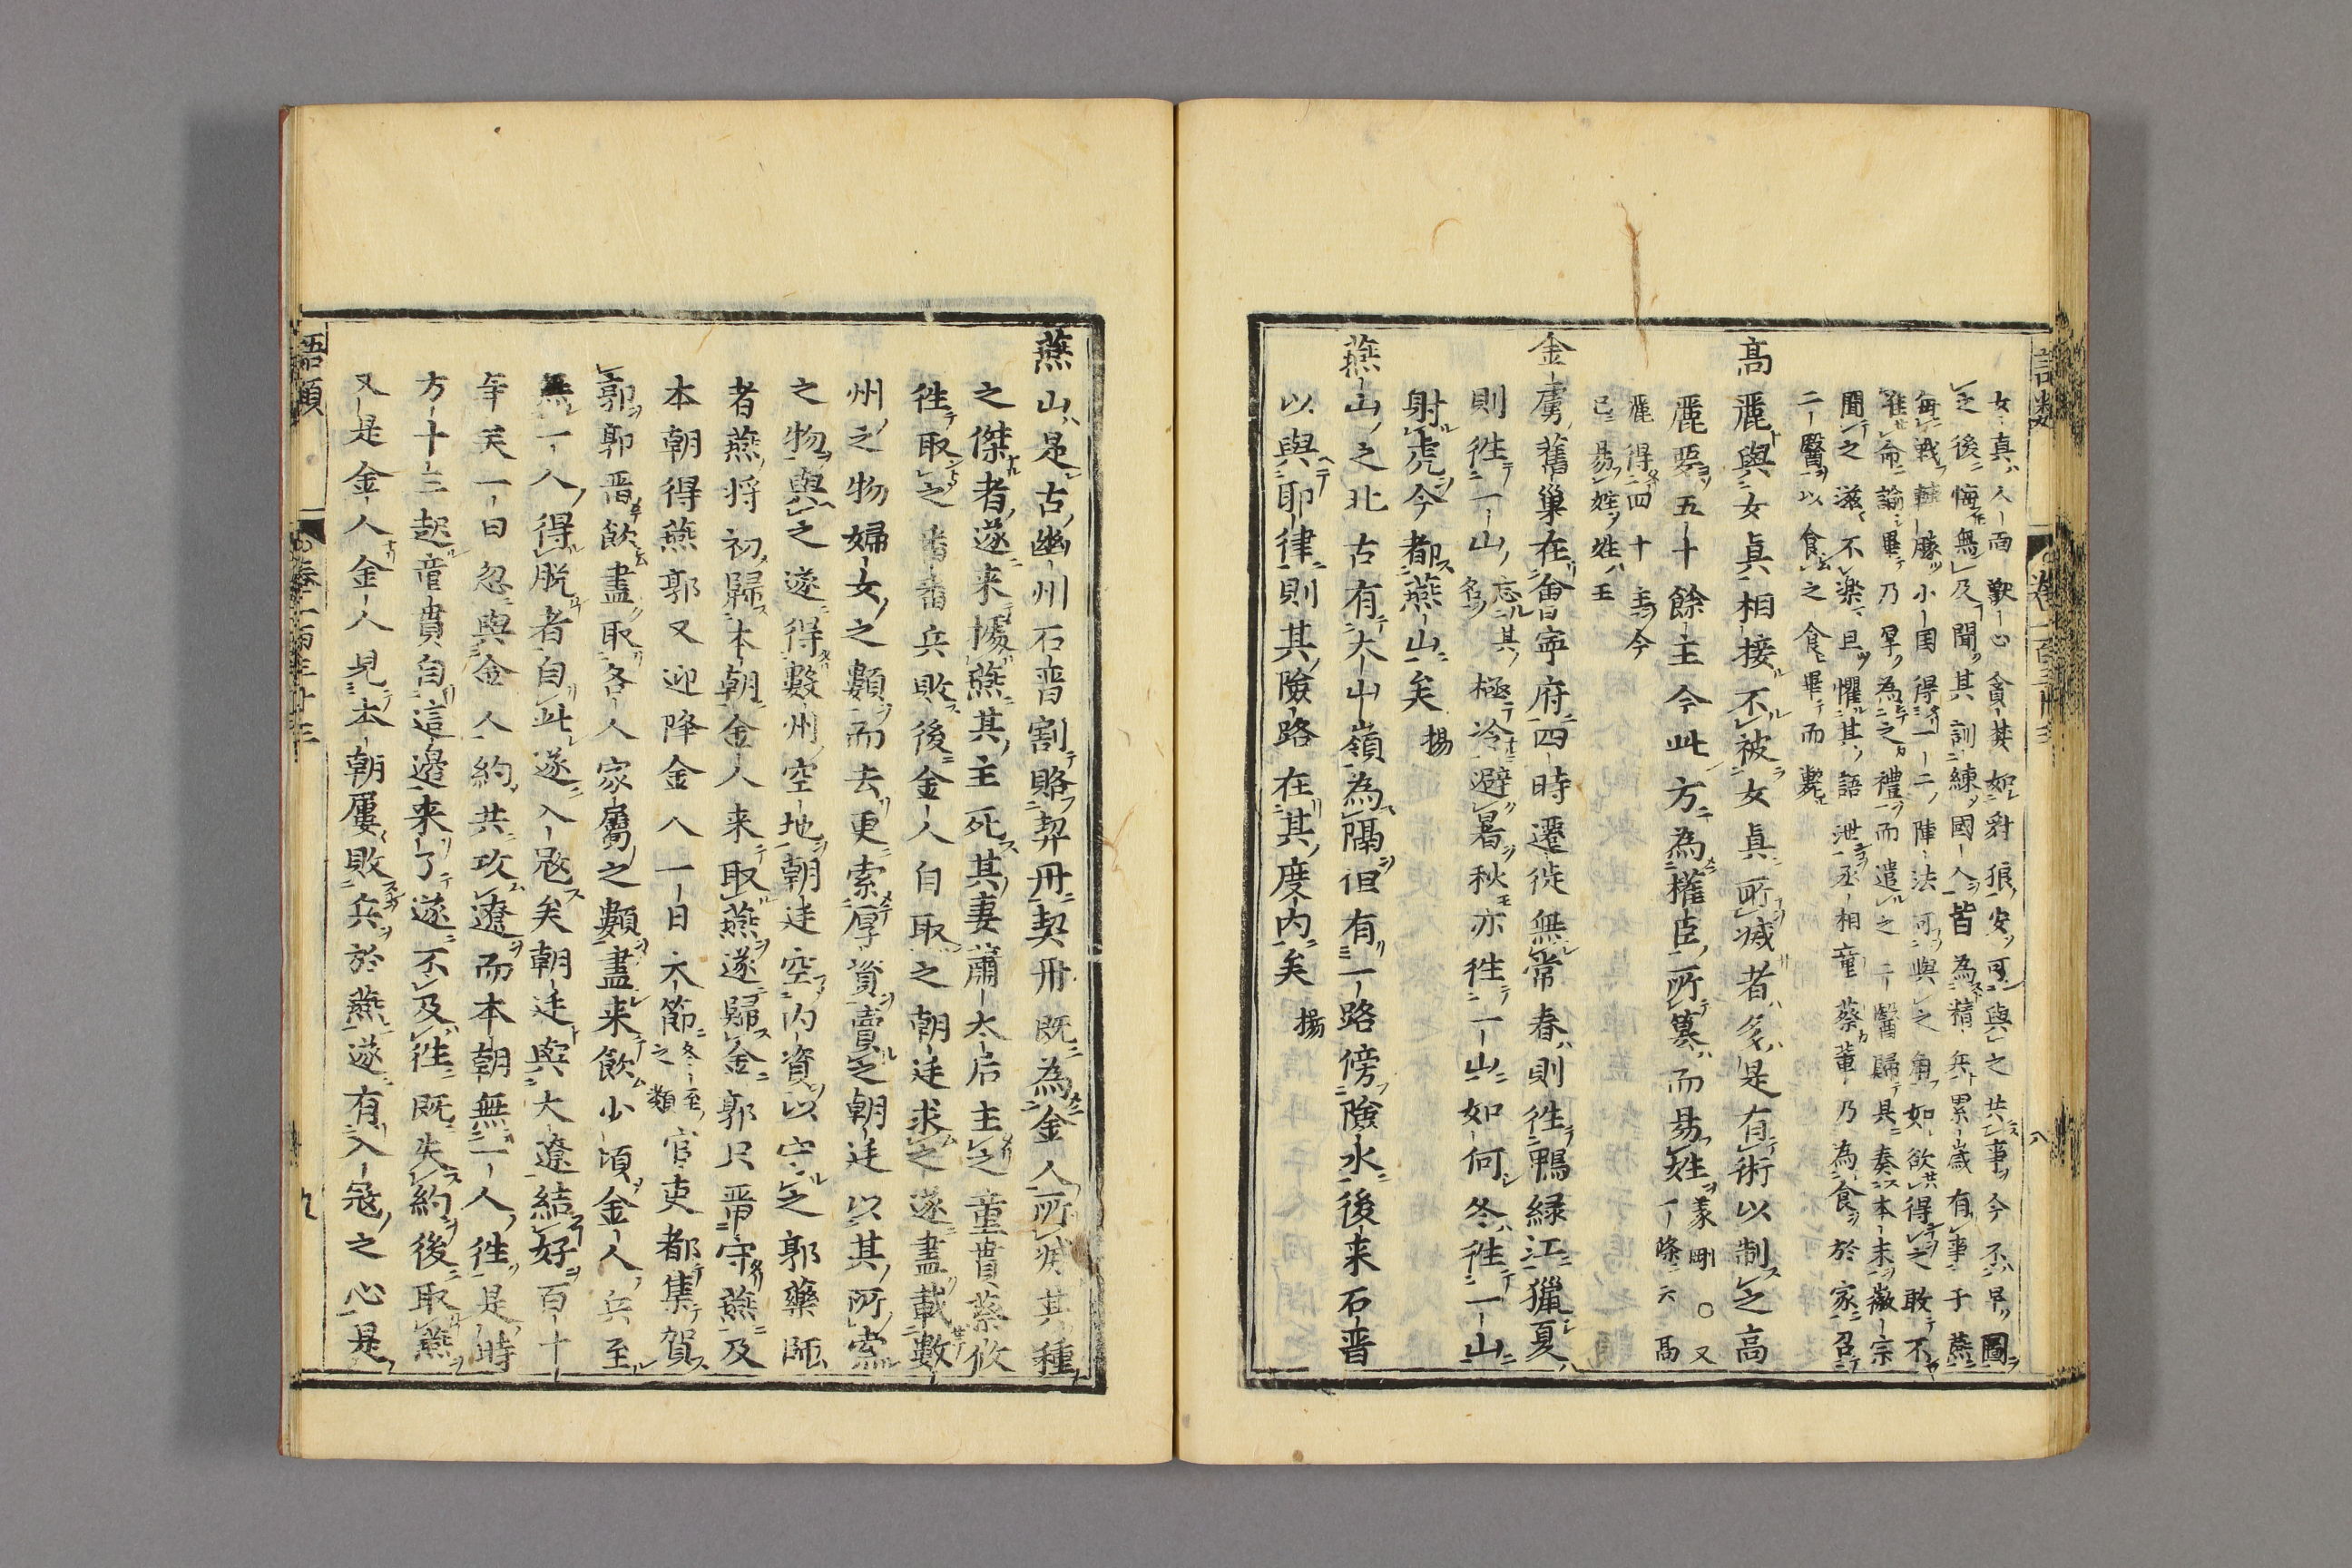 語類
卷一百三十三
八
女真人面獸心貪婪如豺狼安可與之共事今不早圖
之後悔無及聞其訓練國人皆為精兵累歲有事于燕
每戰輙勝小国得一二陣法可與之角如欲得之敢不
唯命論畢乃早為之禮而遣之二醫歸具奏本末徽宗
聞之滋不楽且懼其語泄丞相童蔡輩乃為食於家召
二醫以食之食畢而斃
高麗與女真相接不被女真所滅者多是有術以制之高
麗要五十餘主今此方為權臣所篡而易姓義剛〇又一條云高
麗得四十主今已易姓姓王
金虜舊巢在會寧府四時遷徙無常春則徃鴨緑江獵夏
則徃一山忘其名極冷避暑秋亦徃一山如何冬徃一山
射虎今都燕山矣揚
燕山之北古有大山嶺為隔但有一路傍險水後来石晋
以與耶律則其險路在其度内矣揚
燕山是古幽州石晋割賂契丹契丹既為金人所滅其種
之傑者遂来據燕其主死其妻蕭太后主之童貫蔡攸
徃取之畨畨兵敗後金人自取之朝廷求之遂盡載數
州之物婦女之類而去更索厚賞賣之朝廷以其所索
之物與之遂得數州空地朝廷空内資以守之郭藥師
者燕将初歸本朝金人来取燕遂歸金郭只管守燕及
本朝得燕郭又迎降金人一日大節冬至之類官吏都集賀
郭郭晋飲盡取各人家屬之類盡来飲少頃金人兵至
無一人得脱者自此遂入冦矣朝廷與大遼結好百十
年矣一日忽與金人約共攻遼而本朝無一人徃是時
方十三起童貫自這邉来了遂不及徃既失約後取燕
又是金人金人見本朝屢敗兵於燕遂有入冦之心是
語類
卷一百三十三
九